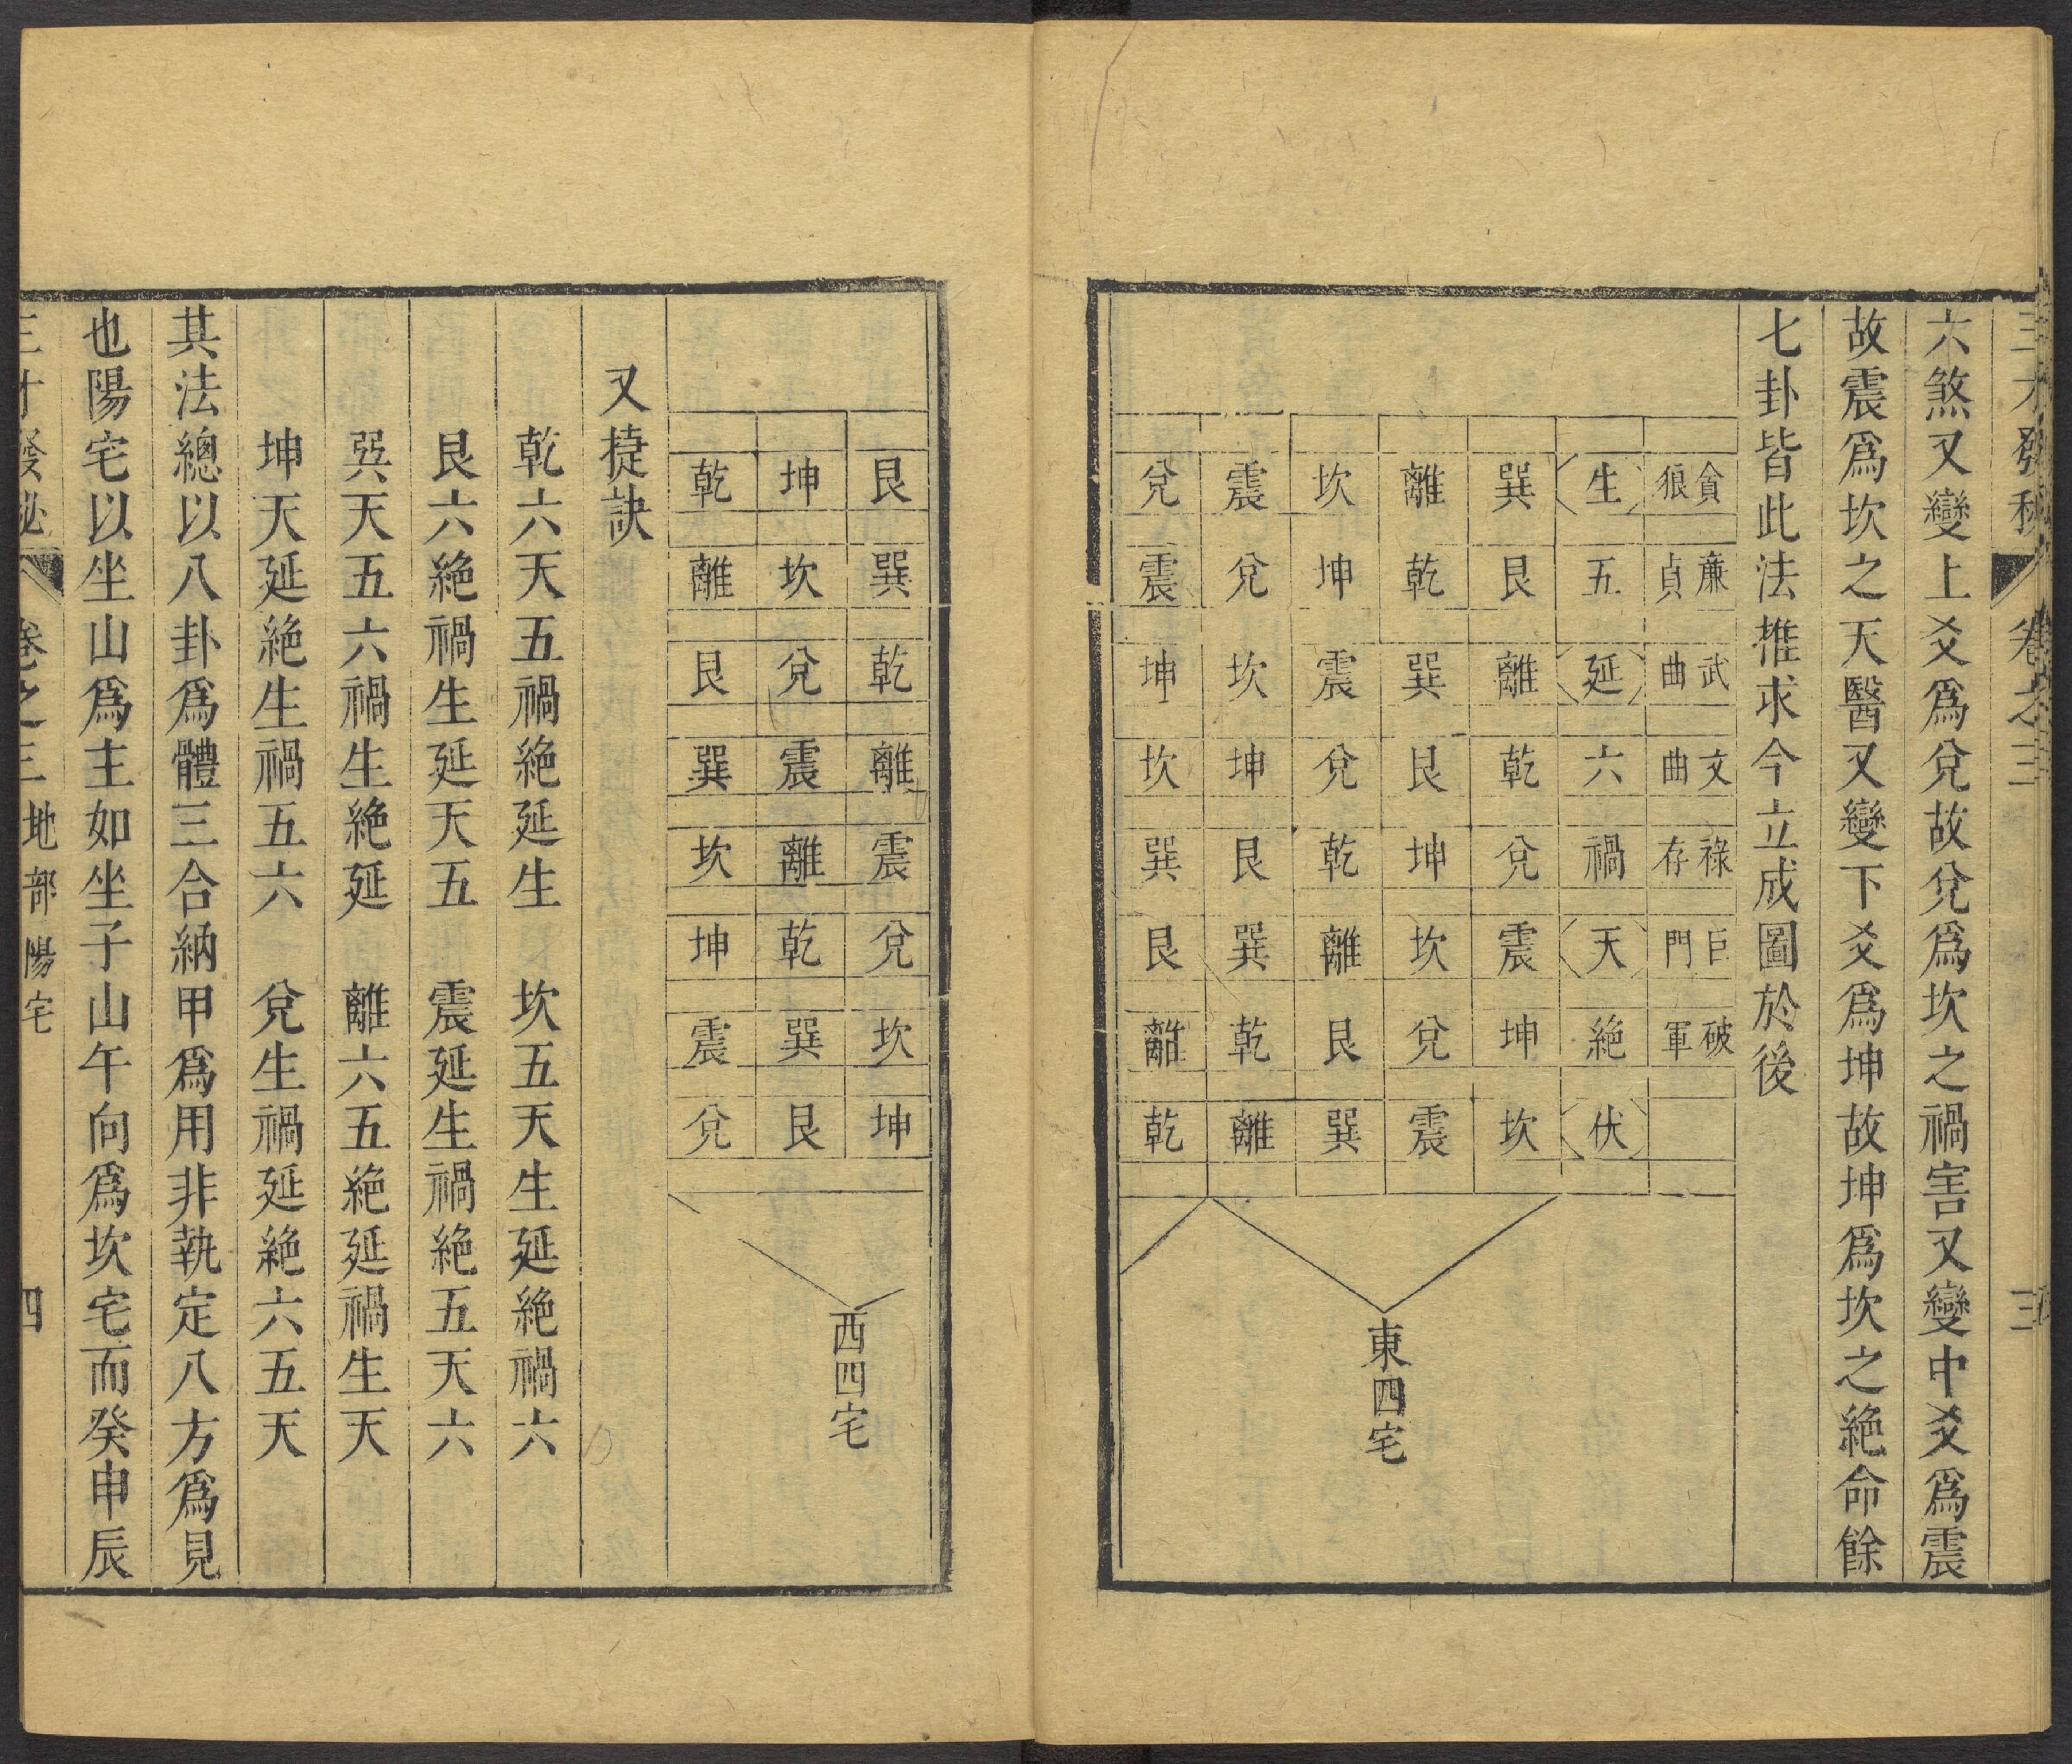 三才發秘 卷之三 三
六煞又變上爻爲兌故兌爲坎之禍害又變中爻爲震
故震爲坎之天醫又變下爻爲坤故坤爲坎之絶命餘
七卦皆此法推求今立成圖於後
貪狼 廉貞 武曲 文曲 祿存 巨門 破軍
生 五 延 六 禍 天 絶 伏
巽 艮 離 乾 兌 震 坤 坎
離 乾 巽 艮 坤 坎 兌 震
坎 坤 震 兌 乾 離 艮 巽
震 兌 坎 坤 艮 巽 乾 離
兌 震 坤 坎 巽 艮 離 乾
東四宅
艮 巽 乾 離 震 兌 坎 坤
坤 坎 兌 震 離 乾 巽 艮
乾 離 艮 巽 坎 坤 震 兌
西四宅
又捷訣
乾六天五禍絶延生 坎五天生延絶禍六
艮六絶禍生延天五 震延生禍絶五天六
巽天五六禍生絶延 離六五絶延禍生天
坤天延絶生禍五六 兌生禍延絶六五天
其法總以八卦爲體三合納甲爲用非執定八方爲見
也陽宅以坐山爲主如坐子山午向爲坎宅而癸申辰
三才發秘 卷之三 地部 陽宅 四